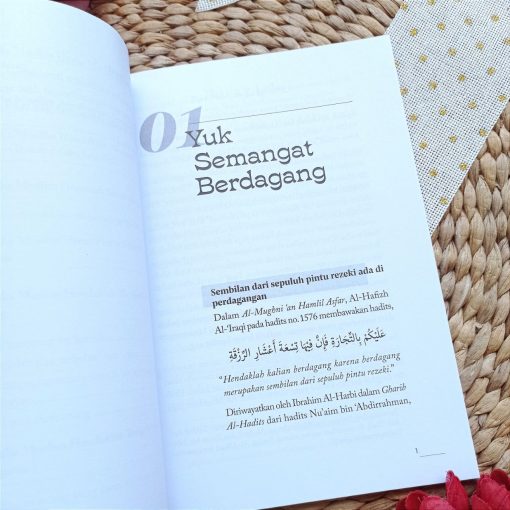 01
Yuk
Semangat
Berdagang
Sembilan dari sepuluh pintu rezeki ada di
perdagangan
Dalam Al-Mughni 'an Hamlil Asfar, Al-Hafizh
Al-'Iraqi pada hadits no. 1576 membawakan hadits,
عَلَيْكُمْ بِالتِّجَارَةِ فَإِنَّ فِيْهَا تِسْعَةَ أَعْشَارِ الرِّزْقَةِ
"Hendaklah kalian berdagang karena berdagang
merupakan sembilan dari sepuluh pintu rezeki."
Diriwayatkan oleh Ibrahim Al-Harbi dalam Gharib
Al-Hadits dari hadits Nu'aim bin 'Abdirrahman,
1